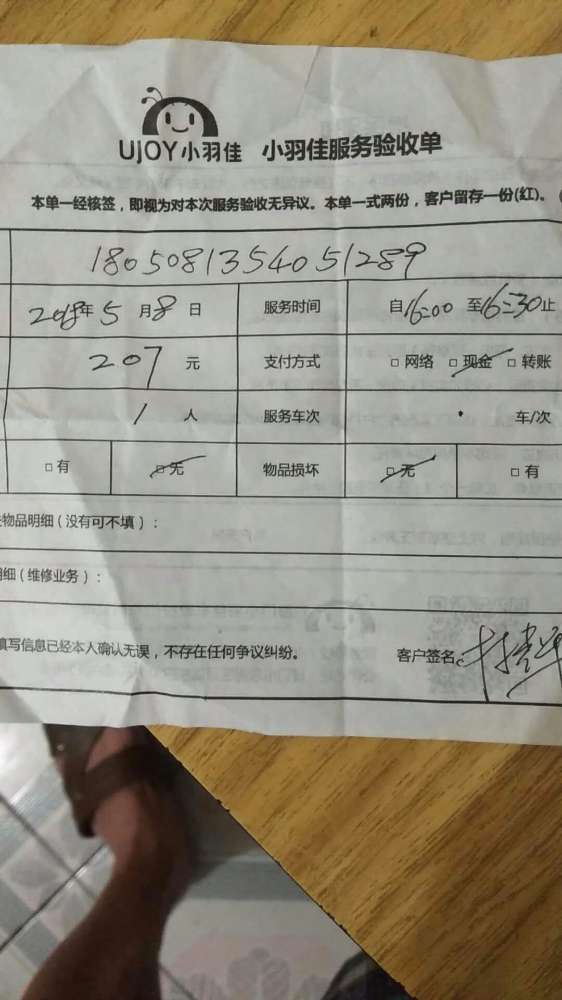 UJOY小羽佳 小羽佳服务验收单
本单一经核签，即视为对本次服务验收无异议。本单一式两份，客户留存一份(红)。
1805081354051289
2018年5月8日 服务时间 自16:00至16:30止
207元 支付方式 □网络 □现金 □转账
1人 服务车次 车/次
□有 □无 物品损坏 □无 □有
物品明细（没有可不填）：
细（维修业务）：
填写信息已经本人确认无误，不存在任何争议纠纷。 客户签名: